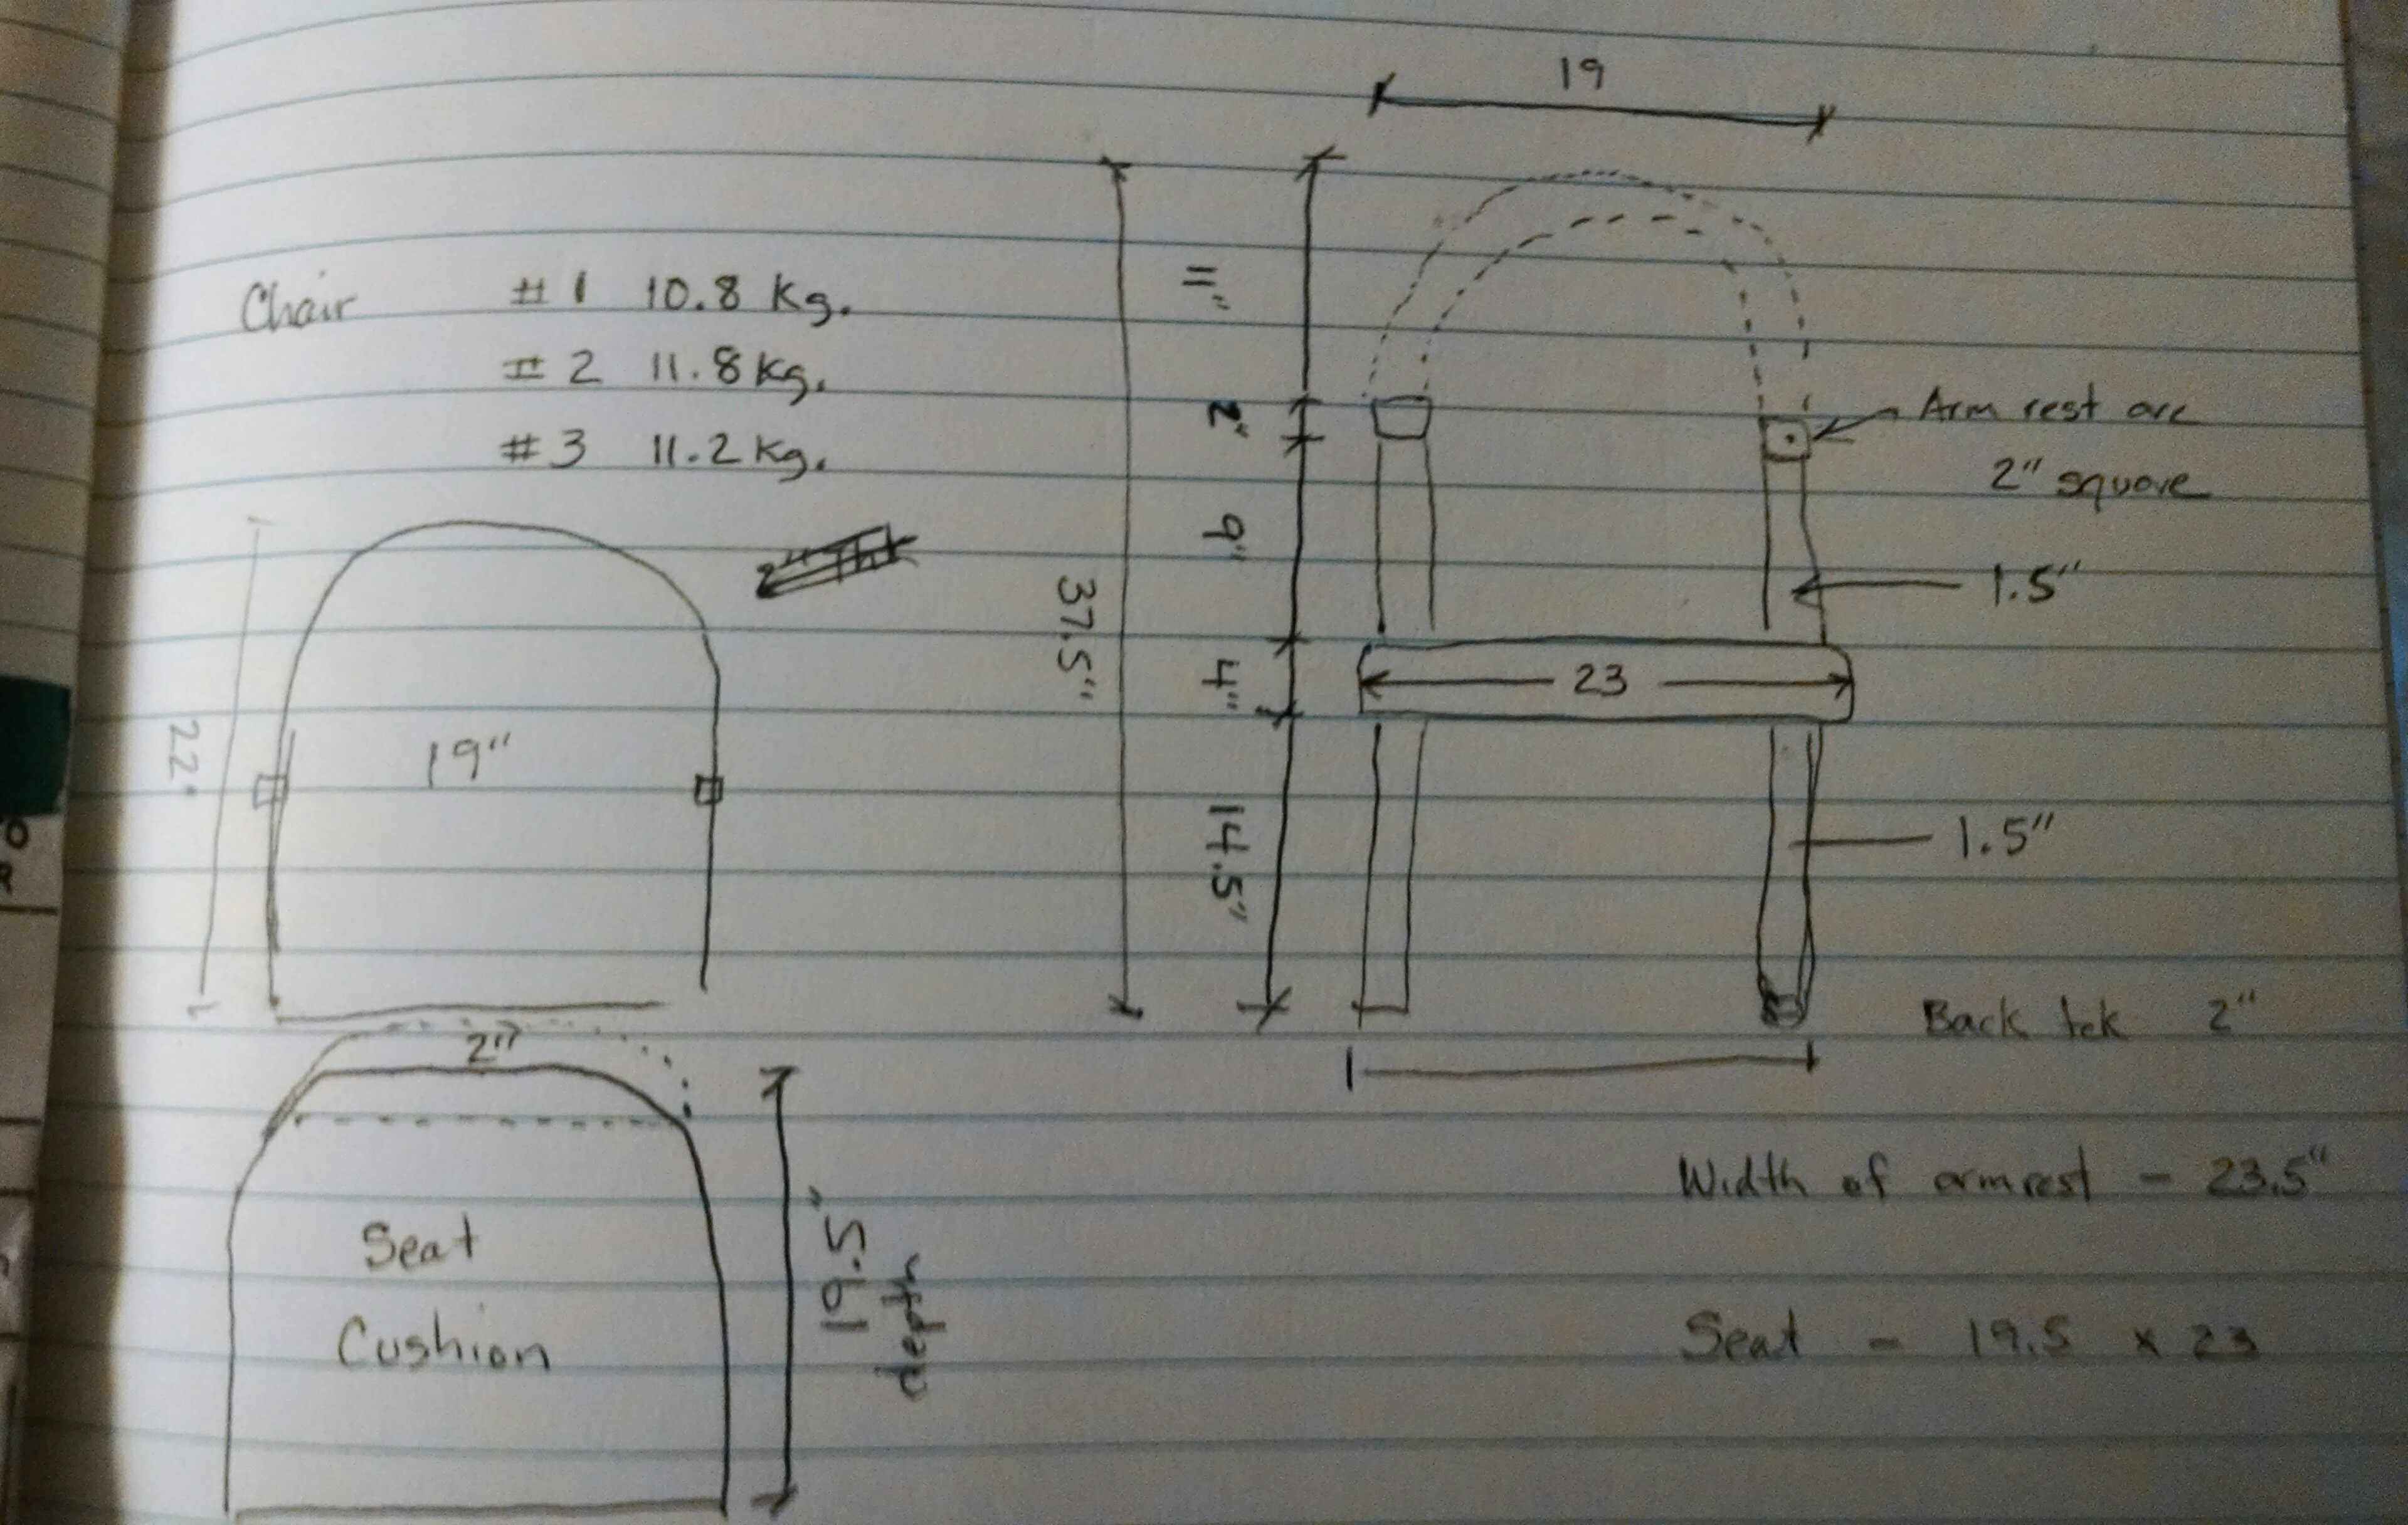 Chair #1 10.8 Kg.
#2 11.8 Kg.
#3 11.2 Kg.
22"
19"
2"
Seat
Cushion
19.5"
depth
19
11"
2"
9"
4"
14.5"
37.5"
23
Arm rest arc
2" square
1.5"
1.5"
Back tck 2"
Width of armrest - 23.5"
Seat - 19.5 x 23